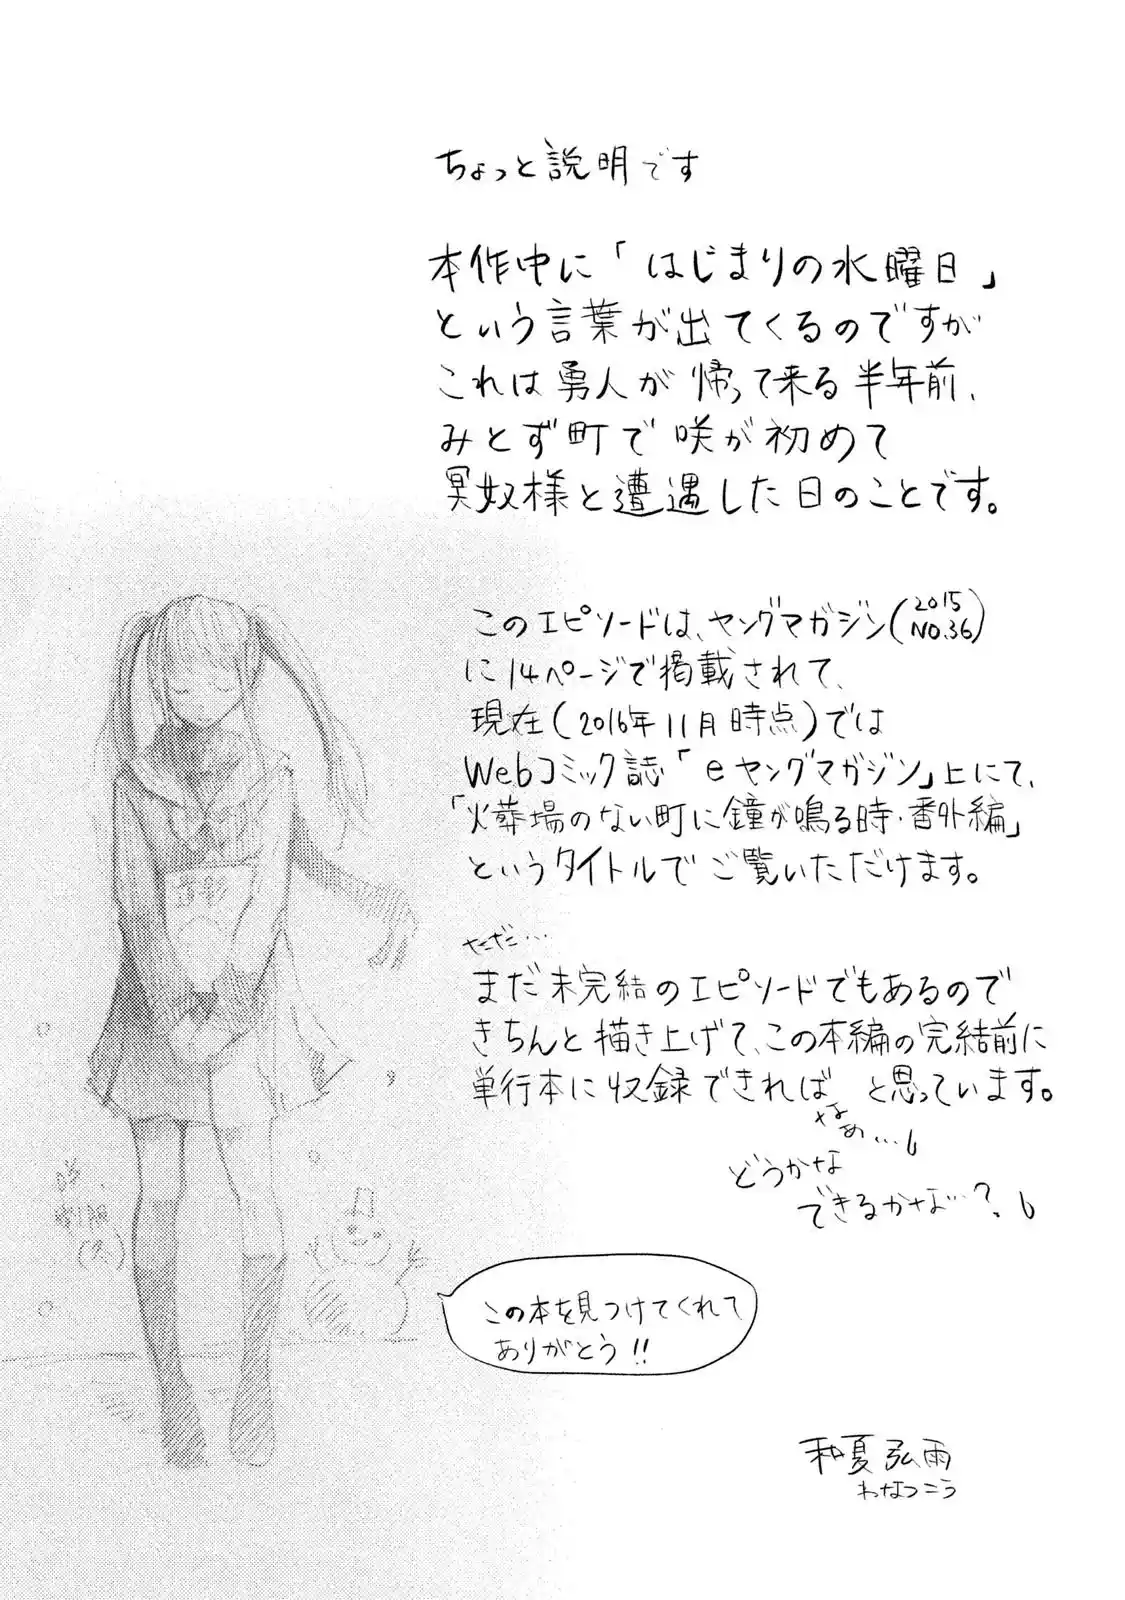 ちょっと説明です
本作中に「はじまりの水曜日」
という言葉が出てくるのですが
これは勇人が帰って来る半年前、
みとず町で咲が初めて
冥奴様と遭遇した日のことです。
このエピソードは、ヤングマガジン(2015 NO.36)
に14ページで掲載されて、
現在(2016年11月時点)では
Webコミック誌「eヤングマガジン」上にて、
「火葬場のない町に鐘が鳴る時・番外編」
というタイトルでご覧いただけます。
ただ…
まだ未完結のエピソードでもあるので
きちんと描き上げて、この本編の完結前に
単行本に収録できれば と思っています。
なぁ…
どうかな
できるかな…?
この本を見つけてくれて
ありがとう!!
和夏弘雨
わなつこう